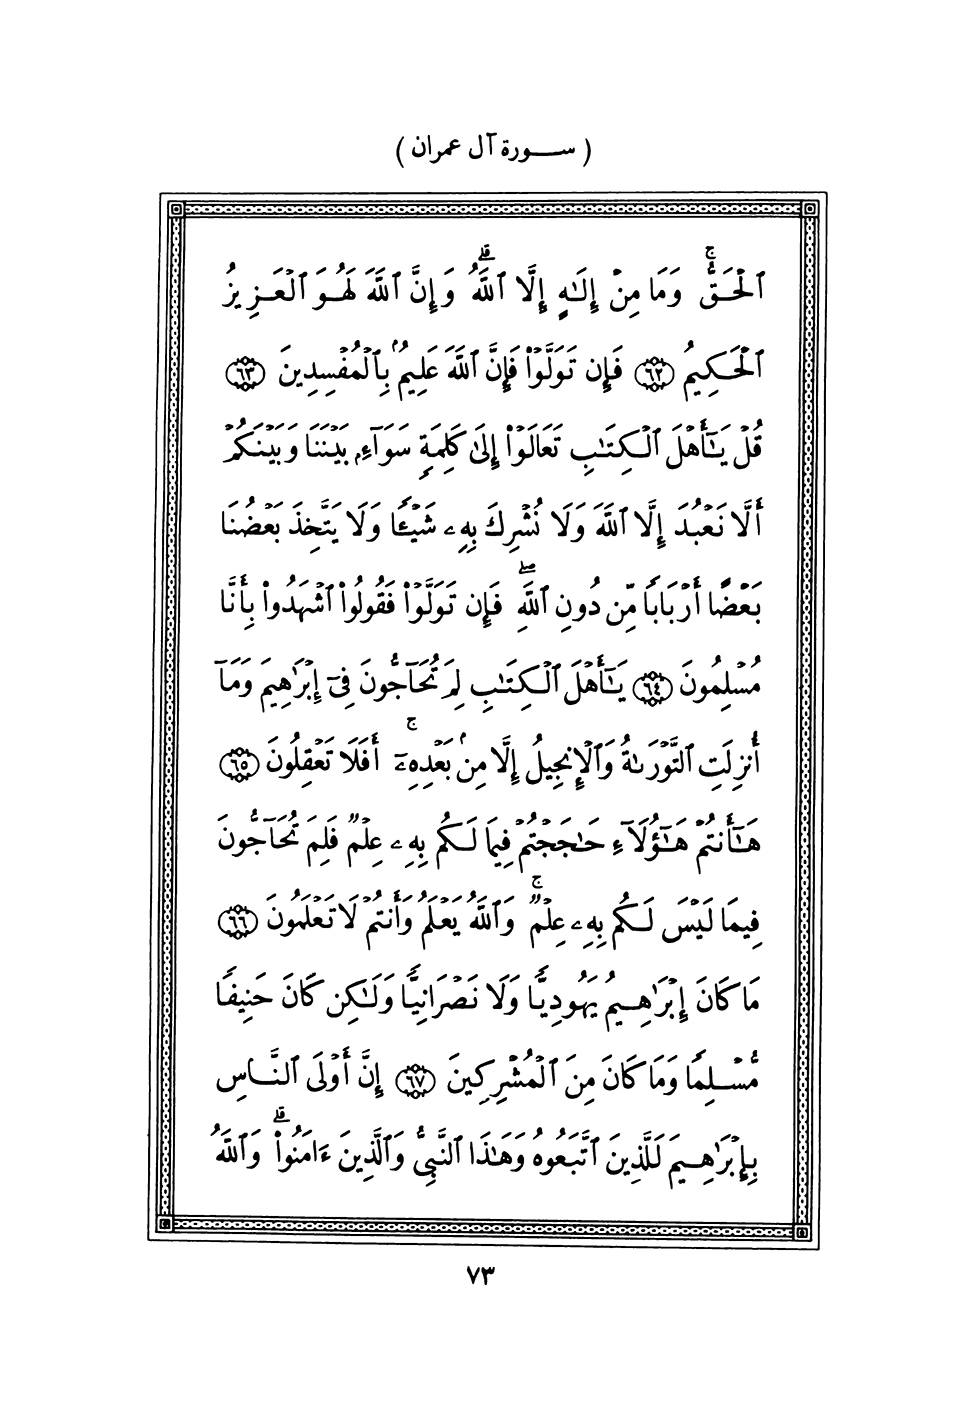 ( سـورة آل عمران )
ٱلْحَقُّ ۚ وَمَا مِنْ إِلَـٰهٍ إِلَّا ٱللَّهُ ۗ وَإِنَّ ٱللَّهَ لَهُوَ ٱلْعَزِيزُ
ٱلْحَكِيمُ ﴿٦٢﴾ فَإِن تَوَلَّوْا۟ فَإِنَّ ٱللَّهَ عَلِيمٌۢ بِٱلْمُفْسِدِينَ ﴿٦٣﴾
قُلْ يَـٰٓأَهْلَ ٱلْكِتَـٰبِ تَعَالَوْا۟ إِلَىٰ كَلِمَةٍ سَوَآءٍۭ بَيْنَنَا وَبَيْنَكُمْ
أَلَّا نَعْبُدَ إِلَّا ٱللَّهَ وَلَا نُشْرِكَ بِهِۦ شَيْـًٔا وَلَا يَتَّخِذَ بَعْضُنَا
بَعْضًا أَرْبَابًا مِّن دُونِ ٱللَّهِ ۖ فَإِن تَوَلَّوْا۟ فَقُولُوا۟ ٱشْهَدُوا۟ بِأَنَّا
مُسْلِمُونَ ﴿٦٤﴾ يَـٰٓأَهْلَ ٱلْكِتَـٰبِ لِمَ تُحَآجُّونَ فِىٓ إِبْرَٰهِيمَ وَمَآ
أُنزِلَتِ ٱلتَّوْرَىٰةُ وَٱلْإِنجِيلُ إِلَّا مِنۢ بَعْدِهِۦٓ ۚ أَفَلَا تَعْقِلُونَ ﴿٦٥﴾
هَـٰٓأَنتُمْ هَـٰٓؤُلَآءِ حَـٰجَجْتُمْ فِيمَا لَكُم بِهِۦ عِلْمٌ فَلِمَ تُحَآجُّونَ
فِيمَا لَيْسَ لَكُم بِهِۦ عِلْمٌ ۚ وَٱللَّهُ يَعْلَمُ وَأَنتُمْ لَا تَعْلَمُونَ ﴿٦٦﴾
مَا كَانَ إِبْرَٰهِيمُ يَهُودِيًّا وَلَا نَصْرَانِيًّا وَلَـٰكِن كَانَ حَنِيفًا
مُّسْلِمًا وَمَا كَانَ مِنَ ٱلْمُشْرِكِينَ ﴿٦٧﴾ إِنَّ أَوْلَى ٱلنَّاسِ
بِإِبْرَٰهِيمَ لَلَّذِينَ ٱتَّبَعُوهُ وَهَـٰذَا ٱلنَّبِىُّ وَٱلَّذِينَ ءَامَنُوا۟ ۗ وَٱللَّهُ
٧٣